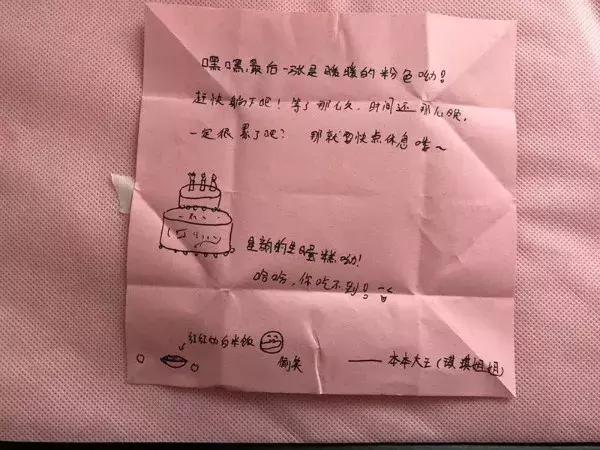 嘿嘿,最后一张是暖暖的粉色呦!
赶快躺下吧!等了那么久,时间还那么晚,
一定很累了吧? 那就要快点休息喽~
是我的生日蛋糕呦!
哈哈,你吃不到!
红红的白米饭
偷笑
——本本大王(琪琪姐姐)